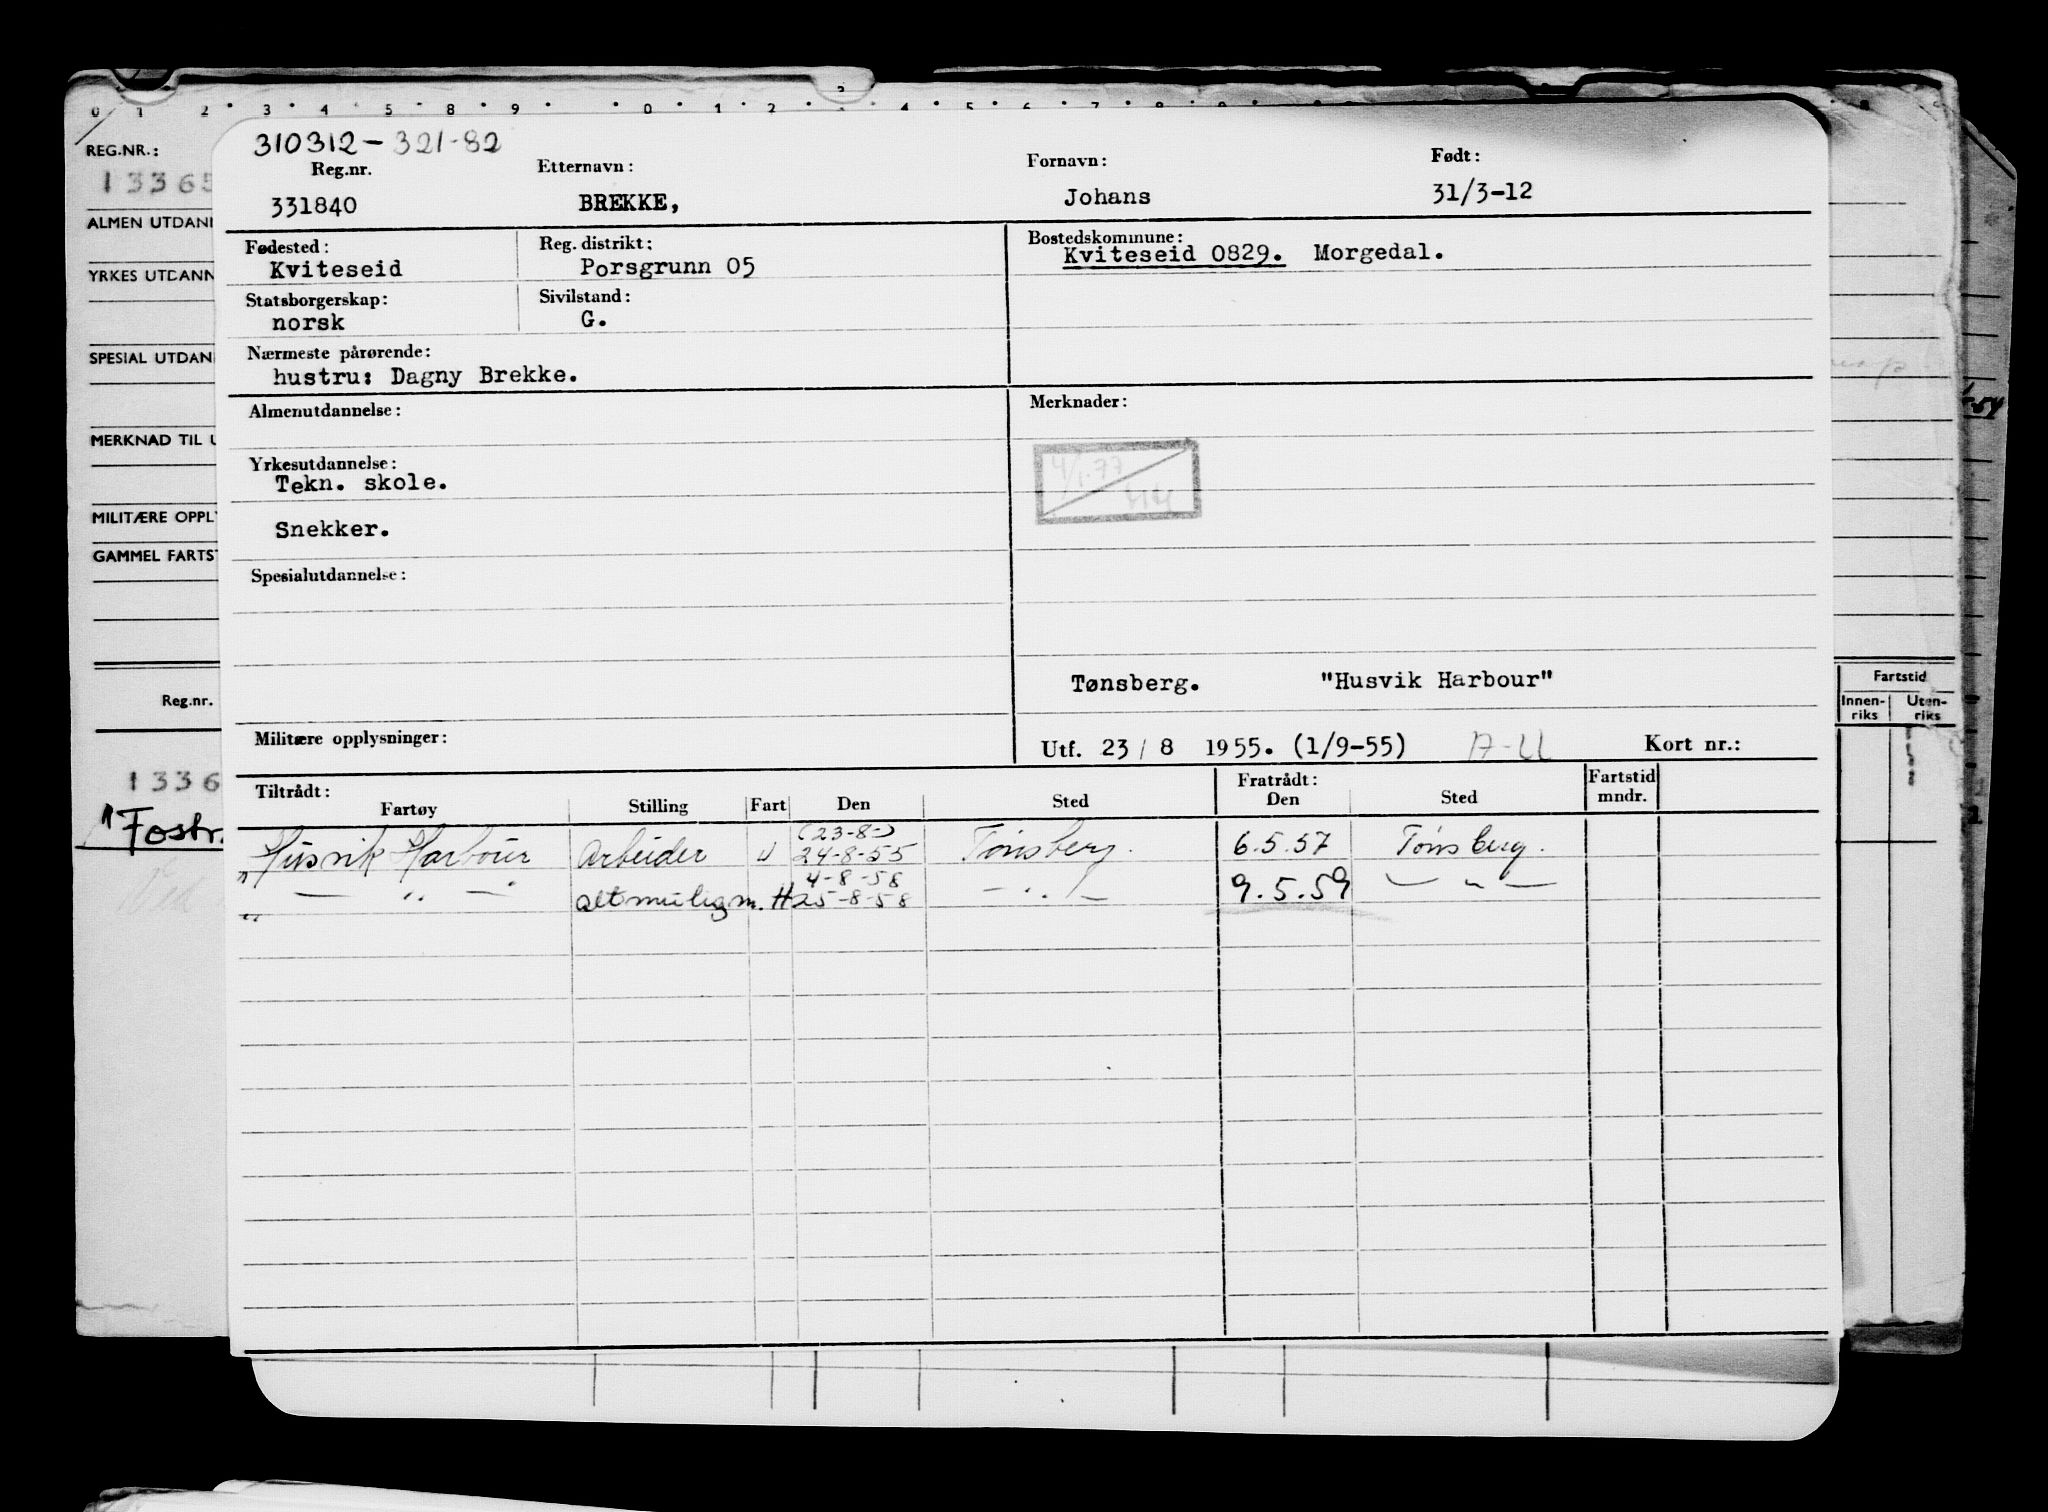 0 1 2 3 4 5 8 9 0 1 2 3 4 5 6 7 8 9
REG.NR.:
13365
ALMEN UTDANN
YRKES UTDANN
SPESIAL UTDAN
MERKNAD TIL U
MILITÆRE OPPLY
GAMMEL FARTST
Reg.nr.
1336
"Fostr.
Ved
310312-321-82
Reg.nr. Etternavn: Fornavn: Født:
331840 BREKKE, Johans 31/3-12
Fødested: Reg. distrikt: Bostedskommune:
Kviteseid Porsgrunn 05 Kviteseid 0829. Morgedal.
Statsborgerskap: Sivilstand:
norsk G.
Nærmeste pårørende:
hustru: Dagny Brekke.
Almenutdannelse: Merknader:
4/1.77
Yrkesutdannelse:
Tekn. skole.
Snekker.
Spesialutdannelse:
Tønsberg. "Husvik Harbour"
Militære opplysninger: Utf. 23/8 1955. (1/9-55) Kort nr.:
Tiltrådt: Fratrådt: Fartstid
Fartøy Stilling Fart Den Sted Den Sted mndr.
(23-8-)
Husvik Harbour Arbeider U 24-8-55 Tønsberg. 6.5.57 Tønsberg.
4-8-58
" — " — altmuligm. H 25-8-58 — " — 9.5.59 — " —
Fartstid
Innen- Uten-
riks riks
-54